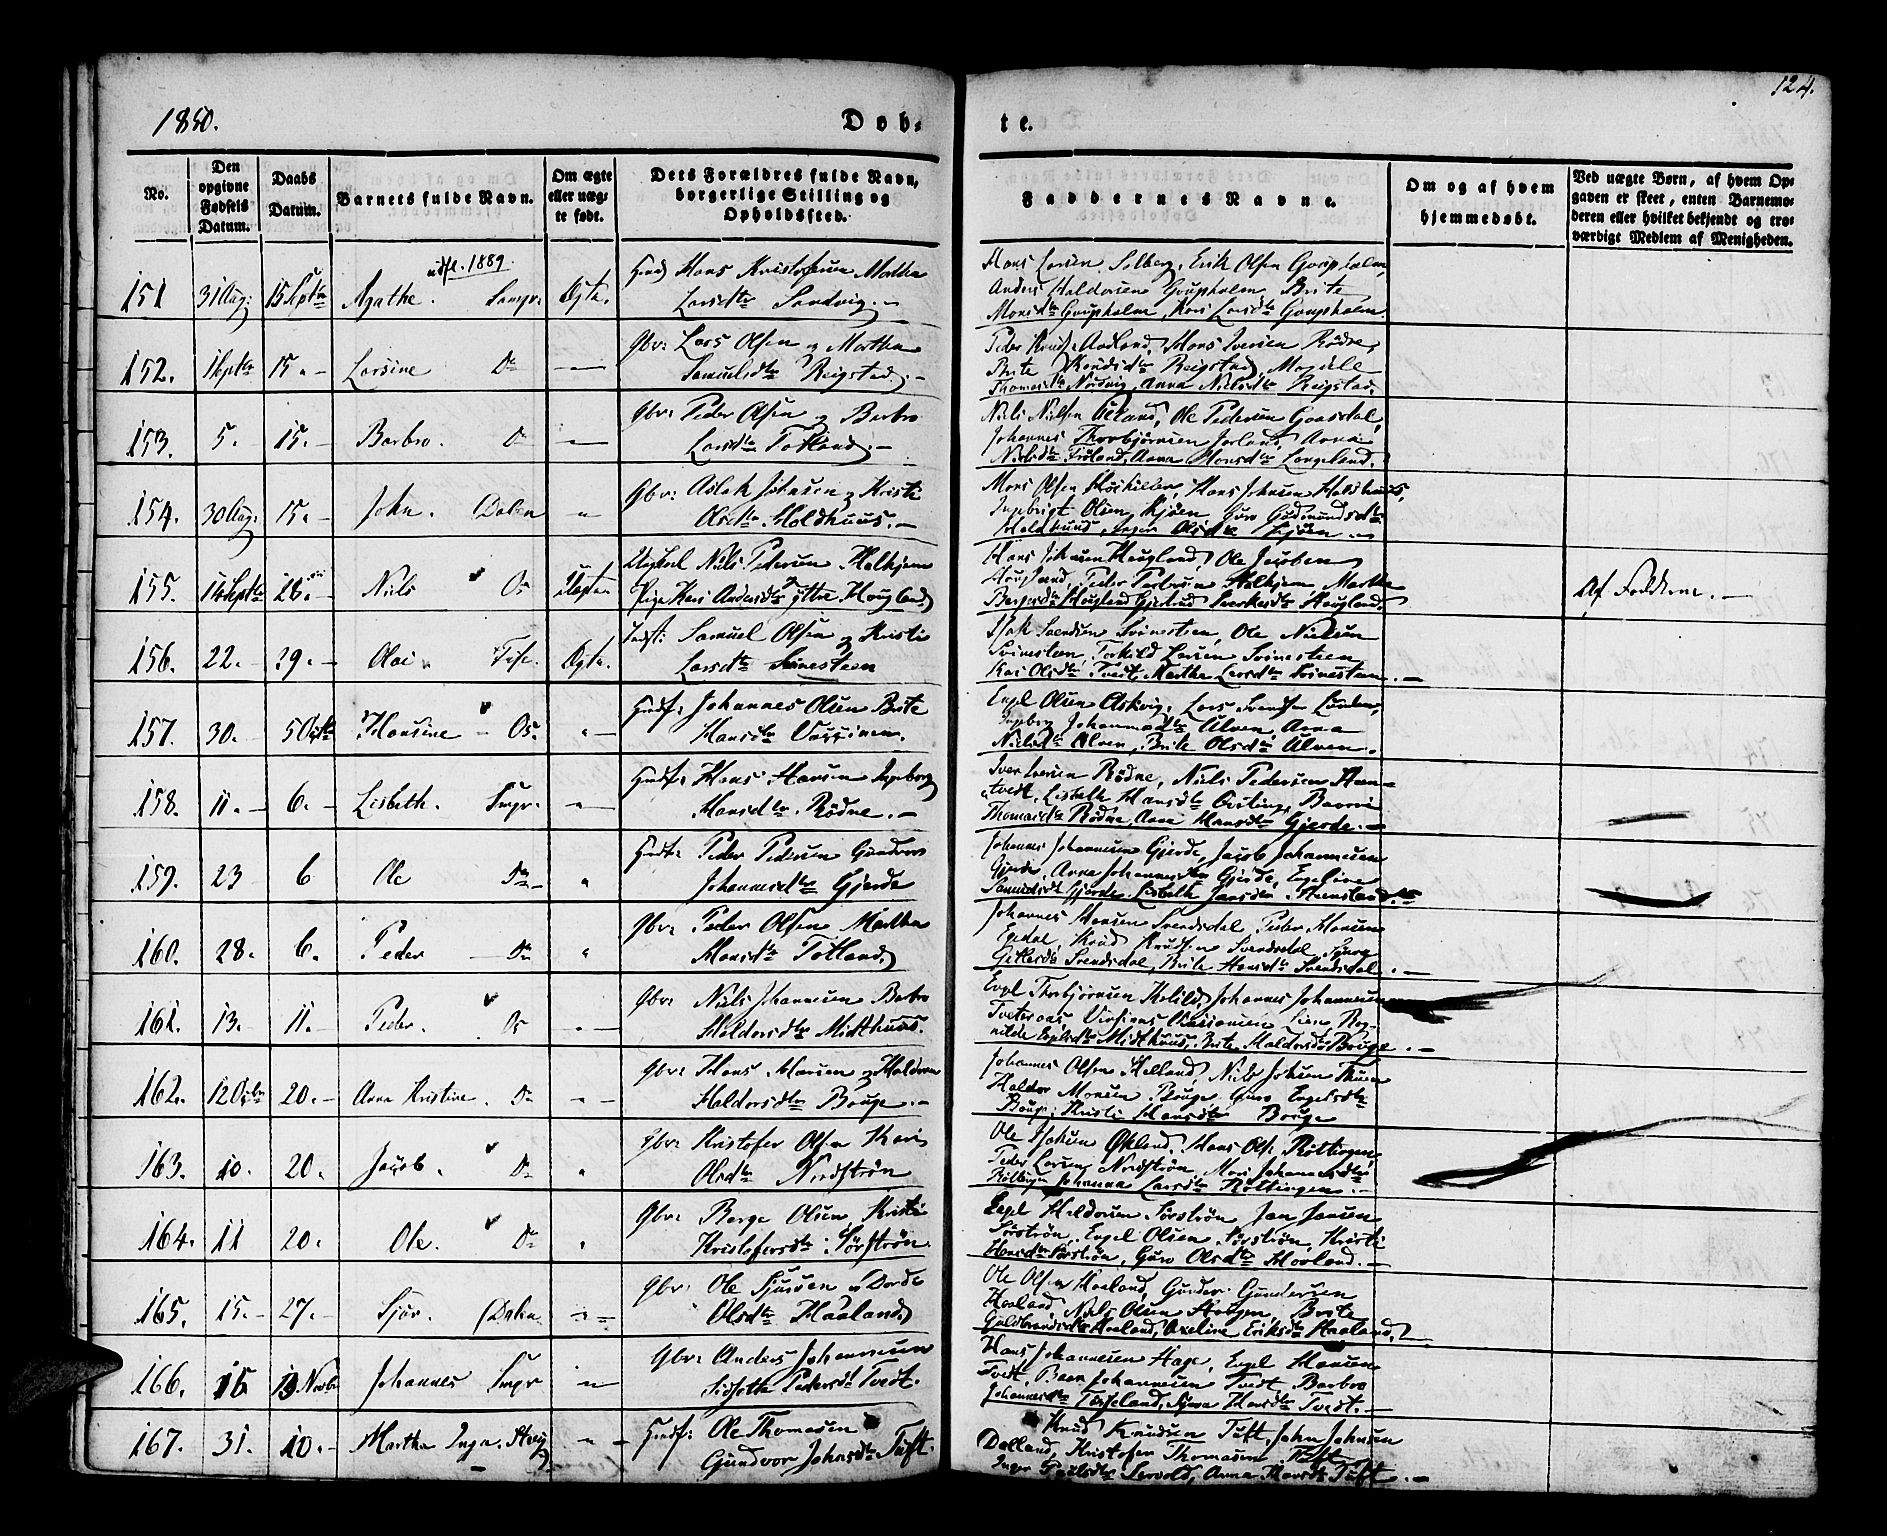 124.
1850.
Døb-
te.
No.
Den opgivne Fødsels Datum.
Daabs Datum.
Barnets fulde Navn.
Om ægte eller uæg-te født.
Dets Forældres fulde Navn, borgerlige Stilling og Opholdssted.
Faddernes Navne.
Om og af hvem hjemmedøbt.
Ved uægte Børn, af hvem Op-gaven er skeet, enten Barnemo-deren eller hvilket bekjendt og tro-værdigt Medlem af Menigheden.
1889.
151 31 Aug: 15 Septbr Agathe. Ægte. Hans Kristofersen Martha
Larsdtr Sandvig.
Hans Larsen Solberg, Erik Olsen Goupholm,
Anders Haldorsen Goupholm, Brite
Monsdtr Goupholm, Kari Larsdtr Goupholm
152. 1 Septbr 15. Larsine Do
Gbr: Lars Olsen og Martha
Samuelsdtr Reigstad.
Peder Knuds. Aadland, Hans Iversen Rødne,
Brite Reigstad,
Thomasdtr Nordvig, Anna Nielsdtr Reigstad.
153. 5. 15. Barbro. Do
Gbr: Peder Olsen og Barbro
Larsdtr Totland.
Niels Nielsen Øvland, Ole Pedersen Gaasdal,
Johannes Thorbjørnsen Jarland, Anna
Nielsdtr Frøland, Anna Monsdtr Langeland.
154. 30 Aug. 15. John. Dalen
Gbr: Aslak Johnsen og Kristi
Olsdtr Holdhuus.
Mons Olsen Hans Johnsen Holdhuus,
Ingebrigt Olsen Skjøen, Guro Gudmundsdtr
Holdhuus, Inger Olsdtr Skjøen
155. 14 Septbr 28. Niels Os Uægte.
Ungkarl Niels Pedersen Halhjem
Pige Kari Andersdtr ytre Hougland
Hans Johnsen Hougland, Ole Jacobsen
Hougland, Peder Halhjem, Martha
Bergesdtr Hougland Gjertrud Sverkesdtr Hougland.
Af Fadderne.
156. 22. 29. Olai Fuse. Ægte.
Indst: Samuel Olsen og Kristi
Larsdtr Svinesteen
Isak Svendsen Svinesteen, Ole Nielsen
Svinesteen, Torkild Larsen Svinesteen
Kari Olsdtr Tveit, Martha Larsdtr Svinesteen.
157. 30. 5 Octbr Hansine Os.
Huusf: Johannes Olsen Brite
Hansdtr
Engel Olsen Askvig, Lars Svendsen Lunden,
Ingeborg Johannesdtr Ulven, Anna
Nielsdtr Ulven, Brite Olsdtr Ulven.
158. 11. 6. Lisbeth.
Huusf: Hans Hansen Ingeborg
Hansdtr Rødne.
Iver Iversen Rødne, Niels Pedersen Han-
tvedt, Lisbeth Hansdtr
Thomasdtr Rødne, Ane Hansdtr Gjerde.
159. 23 6 Ole Do
Huusf: Peder Pedersen Gundvor
Johannesdtr Gjerde
Johannes Johannesen Gjerde, Jacob Johannesen
Gjerde, Anna Johannesdtr Gjerde, Engeline
Samuelsdt Gjerde. Lisbeth Jansdtr
160. 28. 6. Peder Do
Gbr: Peder Olsen Martha
Hansdtr Totland
Johannes Hansen Svendsdal, Peder Hansen
Egedal, Knud Knudsen Svendsdal,
Svendsdal, Brite Hansdtr Svendsdal.
161. 13. 11. Peder. Os
Gbr: Niels Johannesen Barbro
Haldorsdtr Midthuus.
Engel Thorbjørnsen Kolild, Johannes Johannesen
Tveteraas Lien, Rag-
nilde Engelsdtr Midthuus, Brite Haldorsdtr Bouge.
162. 12 Octbr 20. Anna Kristine. Do
Gbr: Hans Monsen og
Haldorsdtr Bouge.
Johannes Olsen Helland, Niels Johnsen Thuen
Haldor Monsen Bouge, Guro Engelsdtr
Bouge, Kristi Hansdtr Bouge
163. 10. 20. Jacob. Do
Gbr: Kristofer Olsen Kari
Olsdtr Nordstrøn
Ole Johnsen Økland, Hans Ols. Røttingen
Peder Larsen Nordstrøn, Mari Johannesdtr
Røttingen Johanna Larsdtr Røttingen.
164. 11 20. Ole. Do
Gbr: Berge Olsen Kristi
Kristofersdtr Sørstrøn.
Engel Haldorsen Sørstrøn, Jan Jansen
Sørstrøn, Engel Olsen Sørstrøn, Kristi
Hansdtr Sørstrøn, Guro Olsdtr Hovland.
165. 15. 27. Sjur. Dalen
Gbr: Ole Sjursen og Dorde
Olsdtr Haaland
Ole Olsen Haaland, Gunder Gundersen
Haaland, Niels Olsen Brite
Guldbrandsdtr Haaland, Axeline Eriksdtr Haaland.
166. 15 13 Novbr Johannes
Gbr: Anders Johannesen
Sidsotha Pedersdtr Tvedt.
Hans Johannesen Hage, Engel Hansen
Tvedt, Baar Johannesen Tvedt Barbro
Johannesdtr Hansdtr Tvedt.
167. 31. 10. Martha Inga.
Huusf: Ole Thomasen
Gundvor Johnsdtr Tuft.
Knud Knudsen Tuft, John Johnsen
Dalland, Kristofer Thomasen Tuft
Inger Anna Hansdtr Tuft.